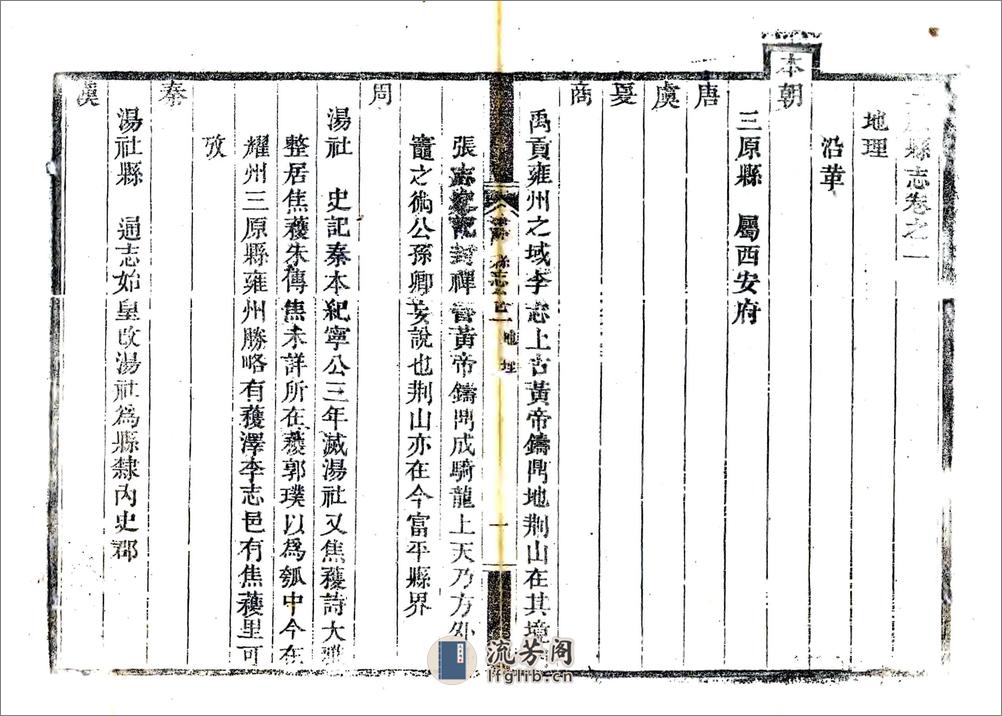 三原縣志卷之一
地理
沿革
本朝
三原縣　屬西安府
唐
虞
夏
商
禹貢雍州之域李志上古黃帝鑄鼎地荆山在其境
縣志卷一　地理　一
張志史記封禪書黃帝鑄鼎成騎龍上天乃方外
竈之術公孫卿妄說也荆山亦在今富平縣界
周
湯社　史記秦本紀寧公三年滅湯社又焦穫詩大雅
整居焦穫朱傳焦未詳所在穫郭璞以爲瓠中今在
耀州三原縣雍州勝略有穫澤李志邑有焦穫里可
攷
秦
湯社縣　通志始皇改湯社爲縣隸內史郡
漢
流芳阁
lfglib.cn